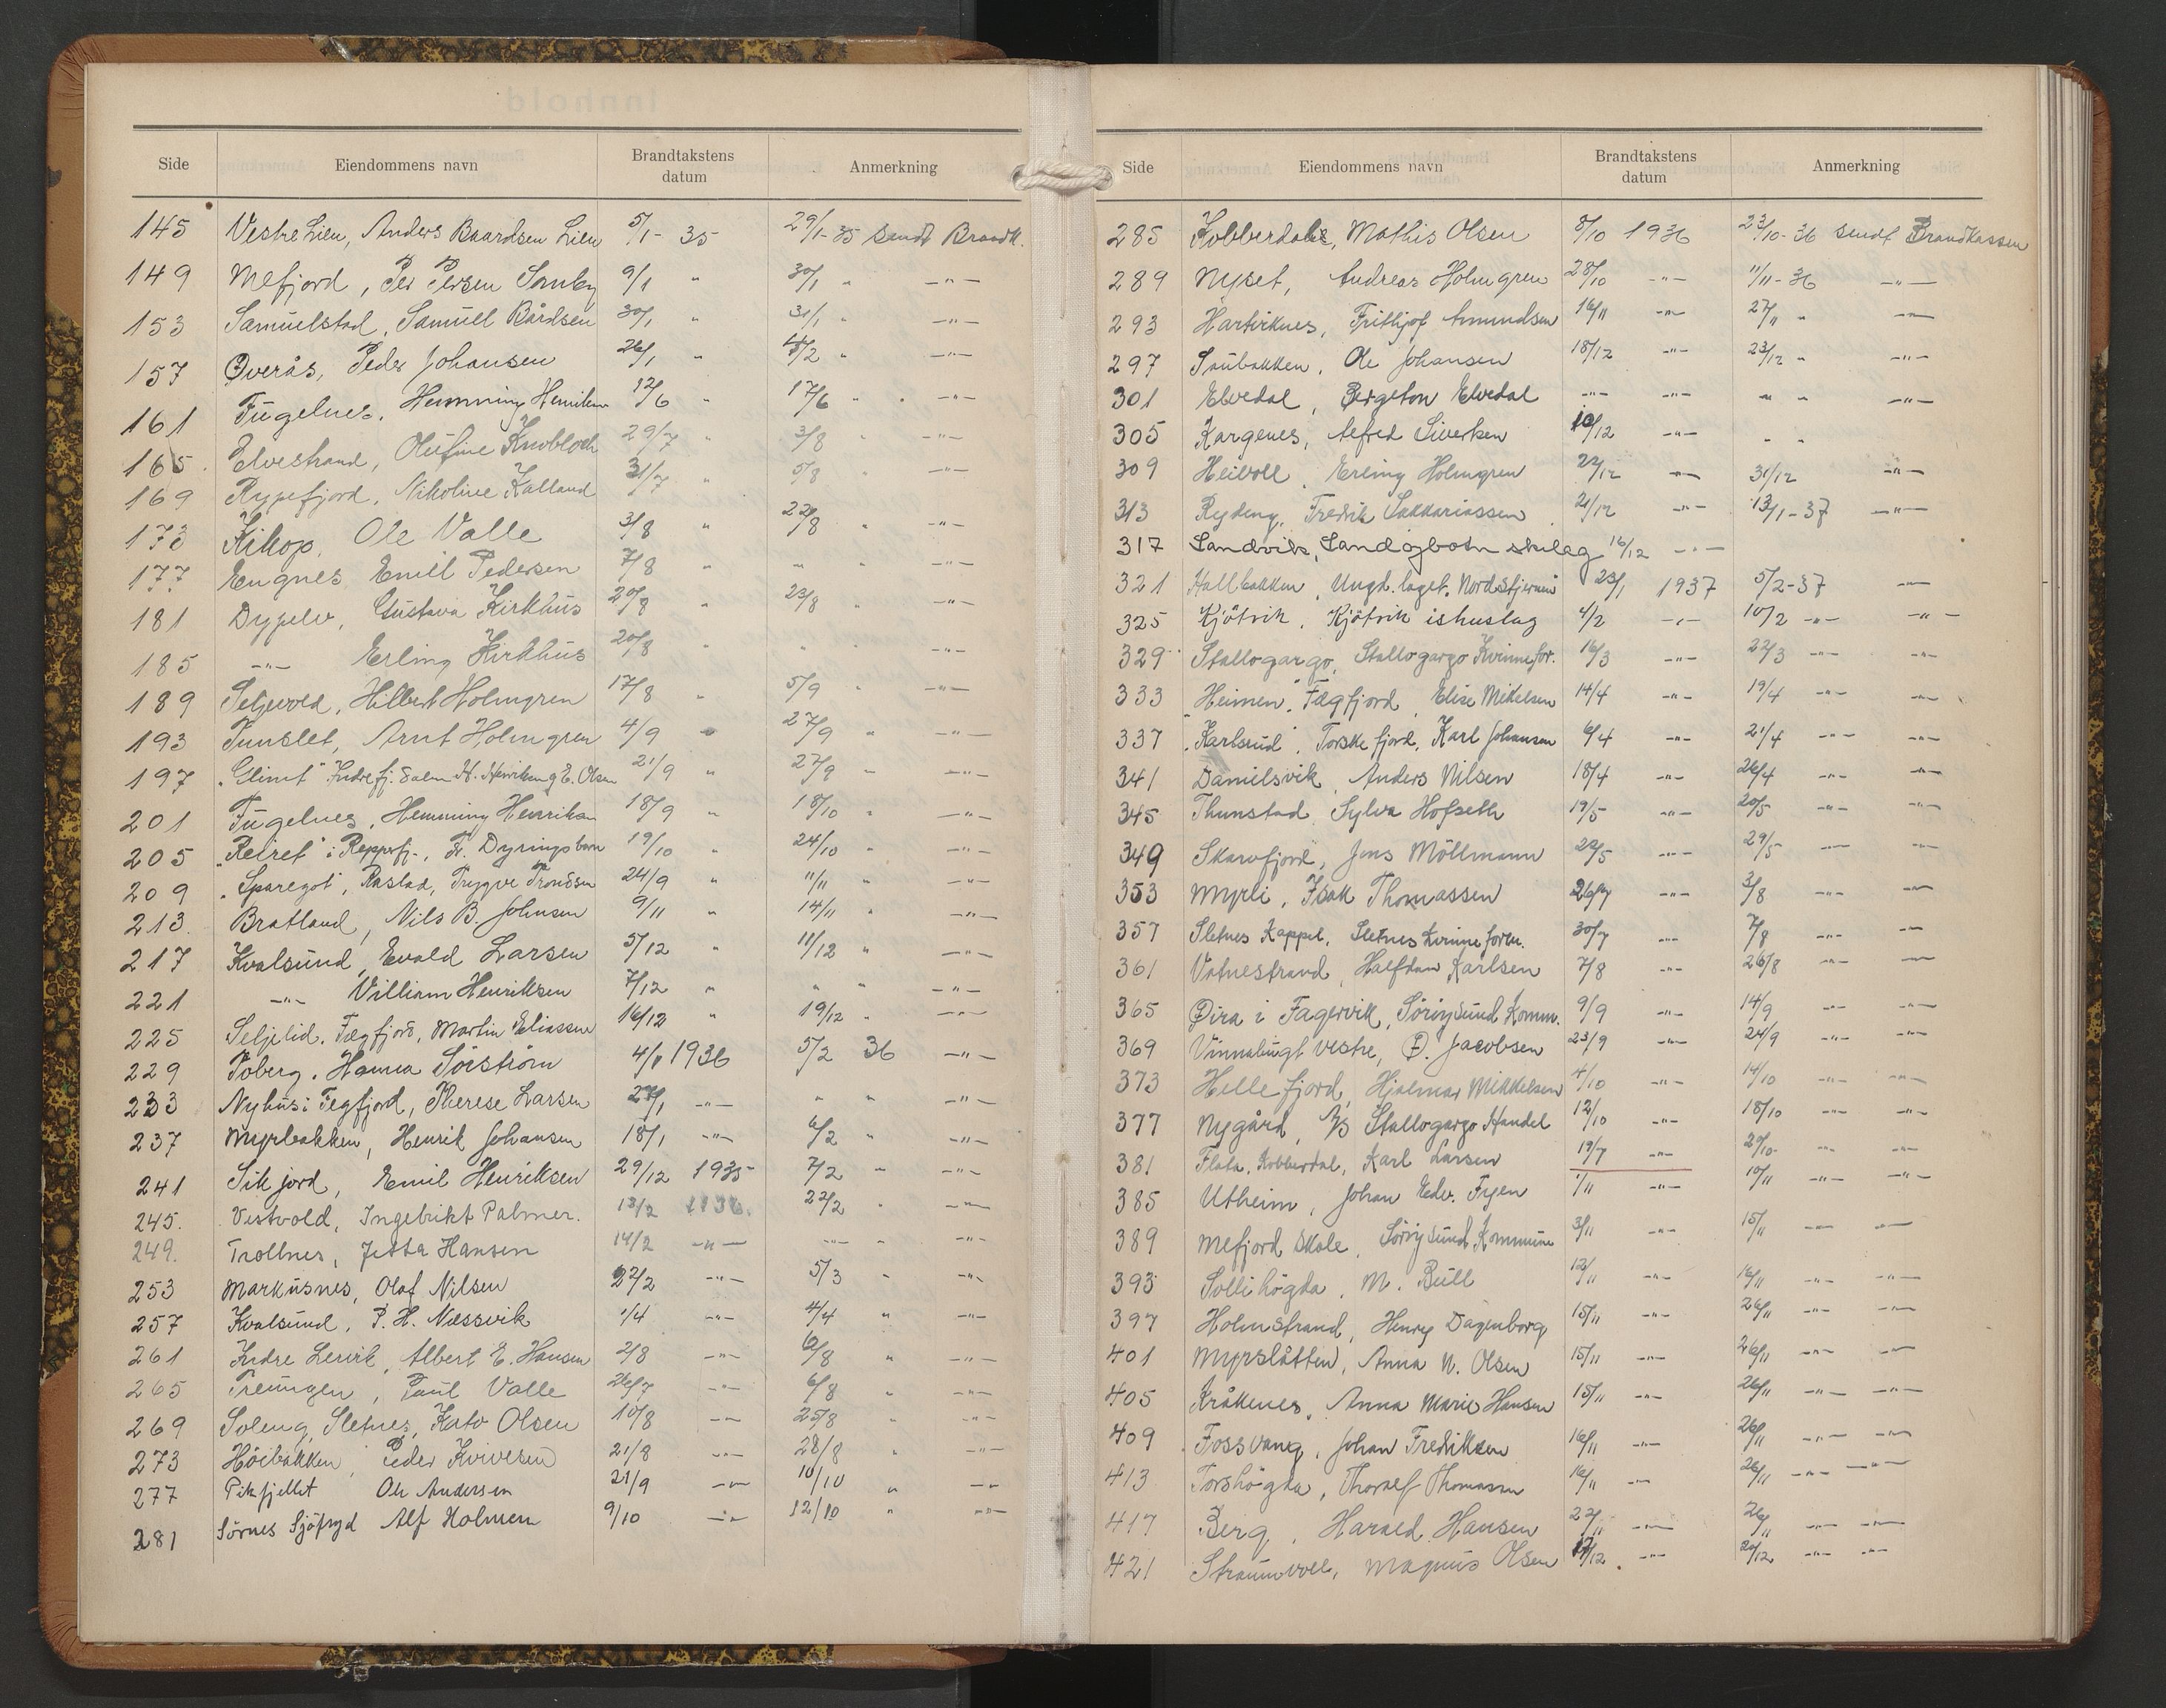 Side Eiendommens navn Brandtakstens datum Anmerkning
145 Vestre Lien, Anders Baardsen Lien 5/1- 35 29/1-35 sendt Brandk.
149 Mefjord, Per Persen 9/1 " 30/1 " -"-
153 Samuelstad, Samuel Bårdsen 30/1 " 31/1 " -"-
157 Øverås, Peder Johansen 26/1 " /2 " -"-
161 Fuglenes, Hemming Henriksen 12/6 " 17/6 " " -"-
165. Elvestrand, Olufine Knobloch 29/7 " 3/8 " -"-
169 Rypefjord, Nikoline Kalland 31/7 " 5/8 " -"-
173 Kikop, Ole Valle 3/8 " 22/8 " -"-
177 Engnes, Emil Pedersen 7/8 " " " -"-
181 Dypelv, Gustava Kirkhus 20/8 " 23/8 " -"-
185 -"- Erling Kirkhus 20/8 " " " -"-
189 Seljevold, Hilbert Holmgren 17/8 " 5/9 " -"-
193 Tunslet, Arnt Holmgren 4/9 " 27/9 " -"-
197 "Glimt" Indrefj. H. Henriksen og E. Olsen 21/9 " 27/9 " -"-
201 Fugelnes, Hemming Henriksen 18/9 " 18/10 " -"-
205 "Reiret" i Repparfj., Fr. Dyrings barn 19/10 " 24/10 " -"-
209 "Sparegot", Rastad, Trygve Trondsen 24/9 " 11/11 " -"-
213. Bratland, Nils B. Johnsen 9/11 " 14/11 " -"-
217 Kvalsund, Evald Larsen 5/12 " 11/12 " -"-
221 -"- Villiam Henriksen 7/12 " " " -"-
225 Seljelid, Fægfjord, Martin Eliassen 16/12 " 19/12 " -"-
229 Toberg, Hanna Sörström 4/1 1936 5/2 36 -"-
233 Nyhus i Fegfjord, Therese Larsen 27/1 -"- " " -"-
237 Myrbakken, Henrik Johansen 18/1 -"- 6/2 " -"-
241 Sikjord, Emil Henriksen 29/12 1935 7/2 " -"-
245. Vestvold, Ingebrikt Palmer. 13/2 1936. 22/2 " -"-
249. Trollnes, Jetta Hansen 14/2 -"- -"- " -"-
253 Markusnes, Olaf Nilsen 22/2 -"- 5/3 " -"-
257 Kvalsund, P. H. Næssvik 1/4 -"- 4/4 " -"-
261 Indre Lervik, Albert E. Hansen 2/8 -"- 6/8 " -"-
265 Treungen, Paul Valle 26/7 -"- 6/8 " -"-
269 Soleng, Sletnes, Kato Olsen 10/8 -"- 25/8 " -"-
273 Höibakken, Peder Kvivesen 21/8 -"- 28/8 " -"-
277 Pikfjellet Ole Andersen 21/9 -"- 10/10 " -"-
281 Sörnes Sjöfryd Alf Holmen 9/10 -"- 12/10 " -"-
Side Eiendommens navn Brandtakstens datum Anmerkning
285 Kobberdale, Mathis Olsen 8/10 1936 23/10-36 sendt Brandkassen
289 Nyset, Andreas Holmgren 28/10 -"- 11/11-36 -"-
293 Hartviknes, Frithjof Amundsen 16/11 -"- 27/11 " -"-
297 Saubakken, Ole Johansen 18/12 -"- 23/12 " -"-
301 Elvedal, Bergeton Elvedal -"- -"- " " -"-
305 Kargenes, Alfred Siverken 10/12 -"- " "
309 Heivoll, Erling Holmgren 22/12 -"- 31/12 -"-
313 Rejdeng, Fredrik Sakkariassen 21/12 -"- 13/1-37 -"-
317 Landvik, skilag 16/12 -"-
321 Hallbakken, Ungd.laget. Nordstjernen 23/1 1937 5/2-37 -"-
325 Kjötvik, Kjötvik ishuslag 4/2 -"- 10/2 -"- -"-
329 Stallogargo, Stallogargo Kvinnefor. 16/3 -"- 22/3 -"- -"-
333 "Heimen" Fægfjord, Elise Mikelsen 14/4 -"- 19/4 -"- -"-
337 "Karlsrud", Torskefjord, Karl Johansen 6/4 -"- 21/4 -"- -"-
341 Danielsvik, Anders Nilsen 18/4 -"- 26/4 -"- -"-
345 Thunstad, Sylva Hofseth 19/5 -"- 20/5 -"- -"-
349 Skarvfjord, Jens Möllmann 22/5 -"- 29/5 -"- -"-
353 Myrli, Isak Thomassen 26/7 -"- 3/8 -"- -"-
357 Sletnes Kappel, Sletnes Kvinneforen. 30/7 -"- 7/8 -"- -"-
361 Vatnestrand, Halfdan Karlsen 7/8 -"- 26/8 -"- -"-
365 Øira i Fagervik, Söröysund Komm. 9/9 -"- 14/9 -"- -"-
369 Vinnalugt vestre, P. Jacobsen 23/9 -"- 24/9 -"- -"-
373 Hellefjord, Hjalmar Mikkelsen 4/10 -"- 14/10 -"- -"-
377 Nygård, A/S Stallogargo Handel 12/10 -"- 18/10 -"- -"-
381 Flata, Kobberdal, Karl Larsen 19/7 -"- 20/10 -"- -"-
385 Utheim, Johan Edv. Fyen 1/11 -"- 10/11 -"- -"-
389 Mefjord skole, Söröysund Kommune 3/11 -"- 15/11 -"- -"-
393 Sollihögda, M. Bull 12/11 -"- 16/11 -"- -"-
397 Holmstrand, Henry Dagenborg 15/11 -"- 26/11 -"- -"-
401 Myrslåtten, Anna N. Olsen 15/11 -"- 26/11 -"- -"-
405 Kråkenes, Anna Marie Hansen 15/11 -"- 26/11 -"- -"-
409 Fossvang, Johan Fredriksen 16/11 -"- 26/11 -"- -"-
413 Torshögda, Thoralf Thomassen 16/11 -"- 26/11 -"- -"-
417 Berg, Harald Hansen 22/11 -"- 26/11 -"- -"-
421 Straumvoll, Magnus Olsen 17/12. -"- 20/12 -"- -"-